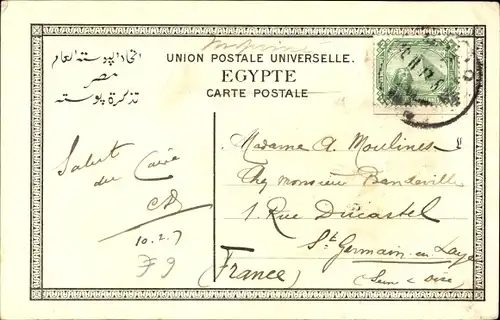 Imprimé
UNION POSTALE UNIVERSELLE.
EGYPTE
CARTE POSTALE
اتحاد البوسته العام
مصر
تذكرة بوسته
Salut
du Caire
10.2.7
F9
Madame A. Moulines
Chez Monsieur Bandeville
1. Rue Ducastel
St Germain-en Laye
(France) (Seine & Oise)